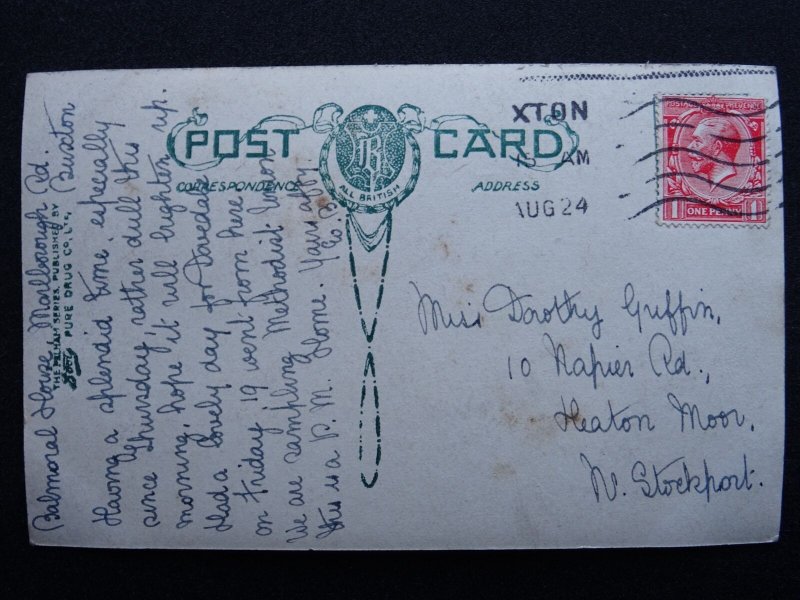 POST CARD
CORRESPONDENCE
ADDRESS
ALL BRITISH
XTON
AM
AUG 24
ONE PENNY
1 1
THE PELHAM SERIES, PUBLISHED BY
Boots PURE DRUG CO., LTD.,
Balmoral House, Marlborough Rd.
Buxton
Having a splendid time, especially
since Thursday, rather dull this
morning, hope it will brighten up.
Had a lovely day for Dovedale
on Friday 19 went from here
We are sampling Methodist Union
this is a P. M. Home. Yours
Miss Dorothy Griffin,
10 Napier Rd.,
Heaton Moor,
Nr. Stockport.